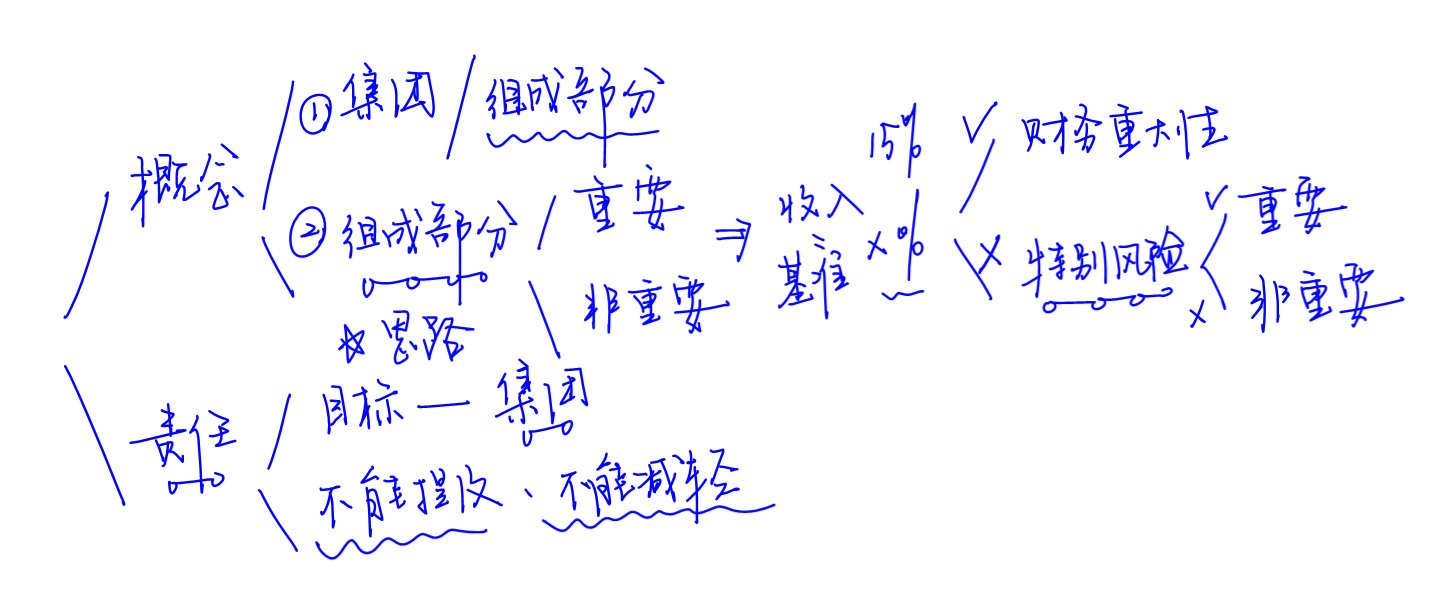 概念
①集团/组成部分
②组成部分
☆思路
重要
非重要
⇒
收入
基准
15%
×%
✓ 财务重大性
× 特别风险
✓ 重要
× 非重要
责任
目标—集团
不能提及、不能减轻